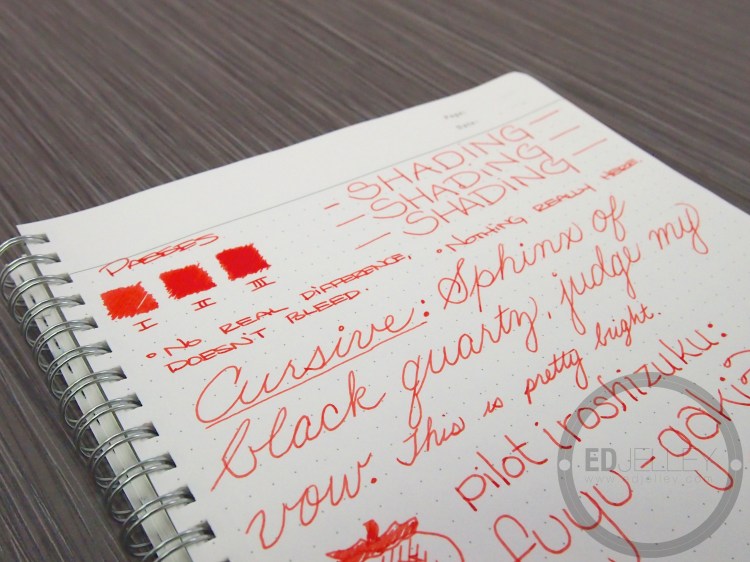 - SHADING -
- SHADING -
- SHADING -
• NOTHING REALLY HERE.
PASSES
I II III
• NO REAL DIFFERENCE,
DOESN'T BLEED.
Cursive: Sphinx of
black quartz, judge my
vow. This is pretty bright.
pilot iroshizuku:
fuyu-gaki
EDJELLEY